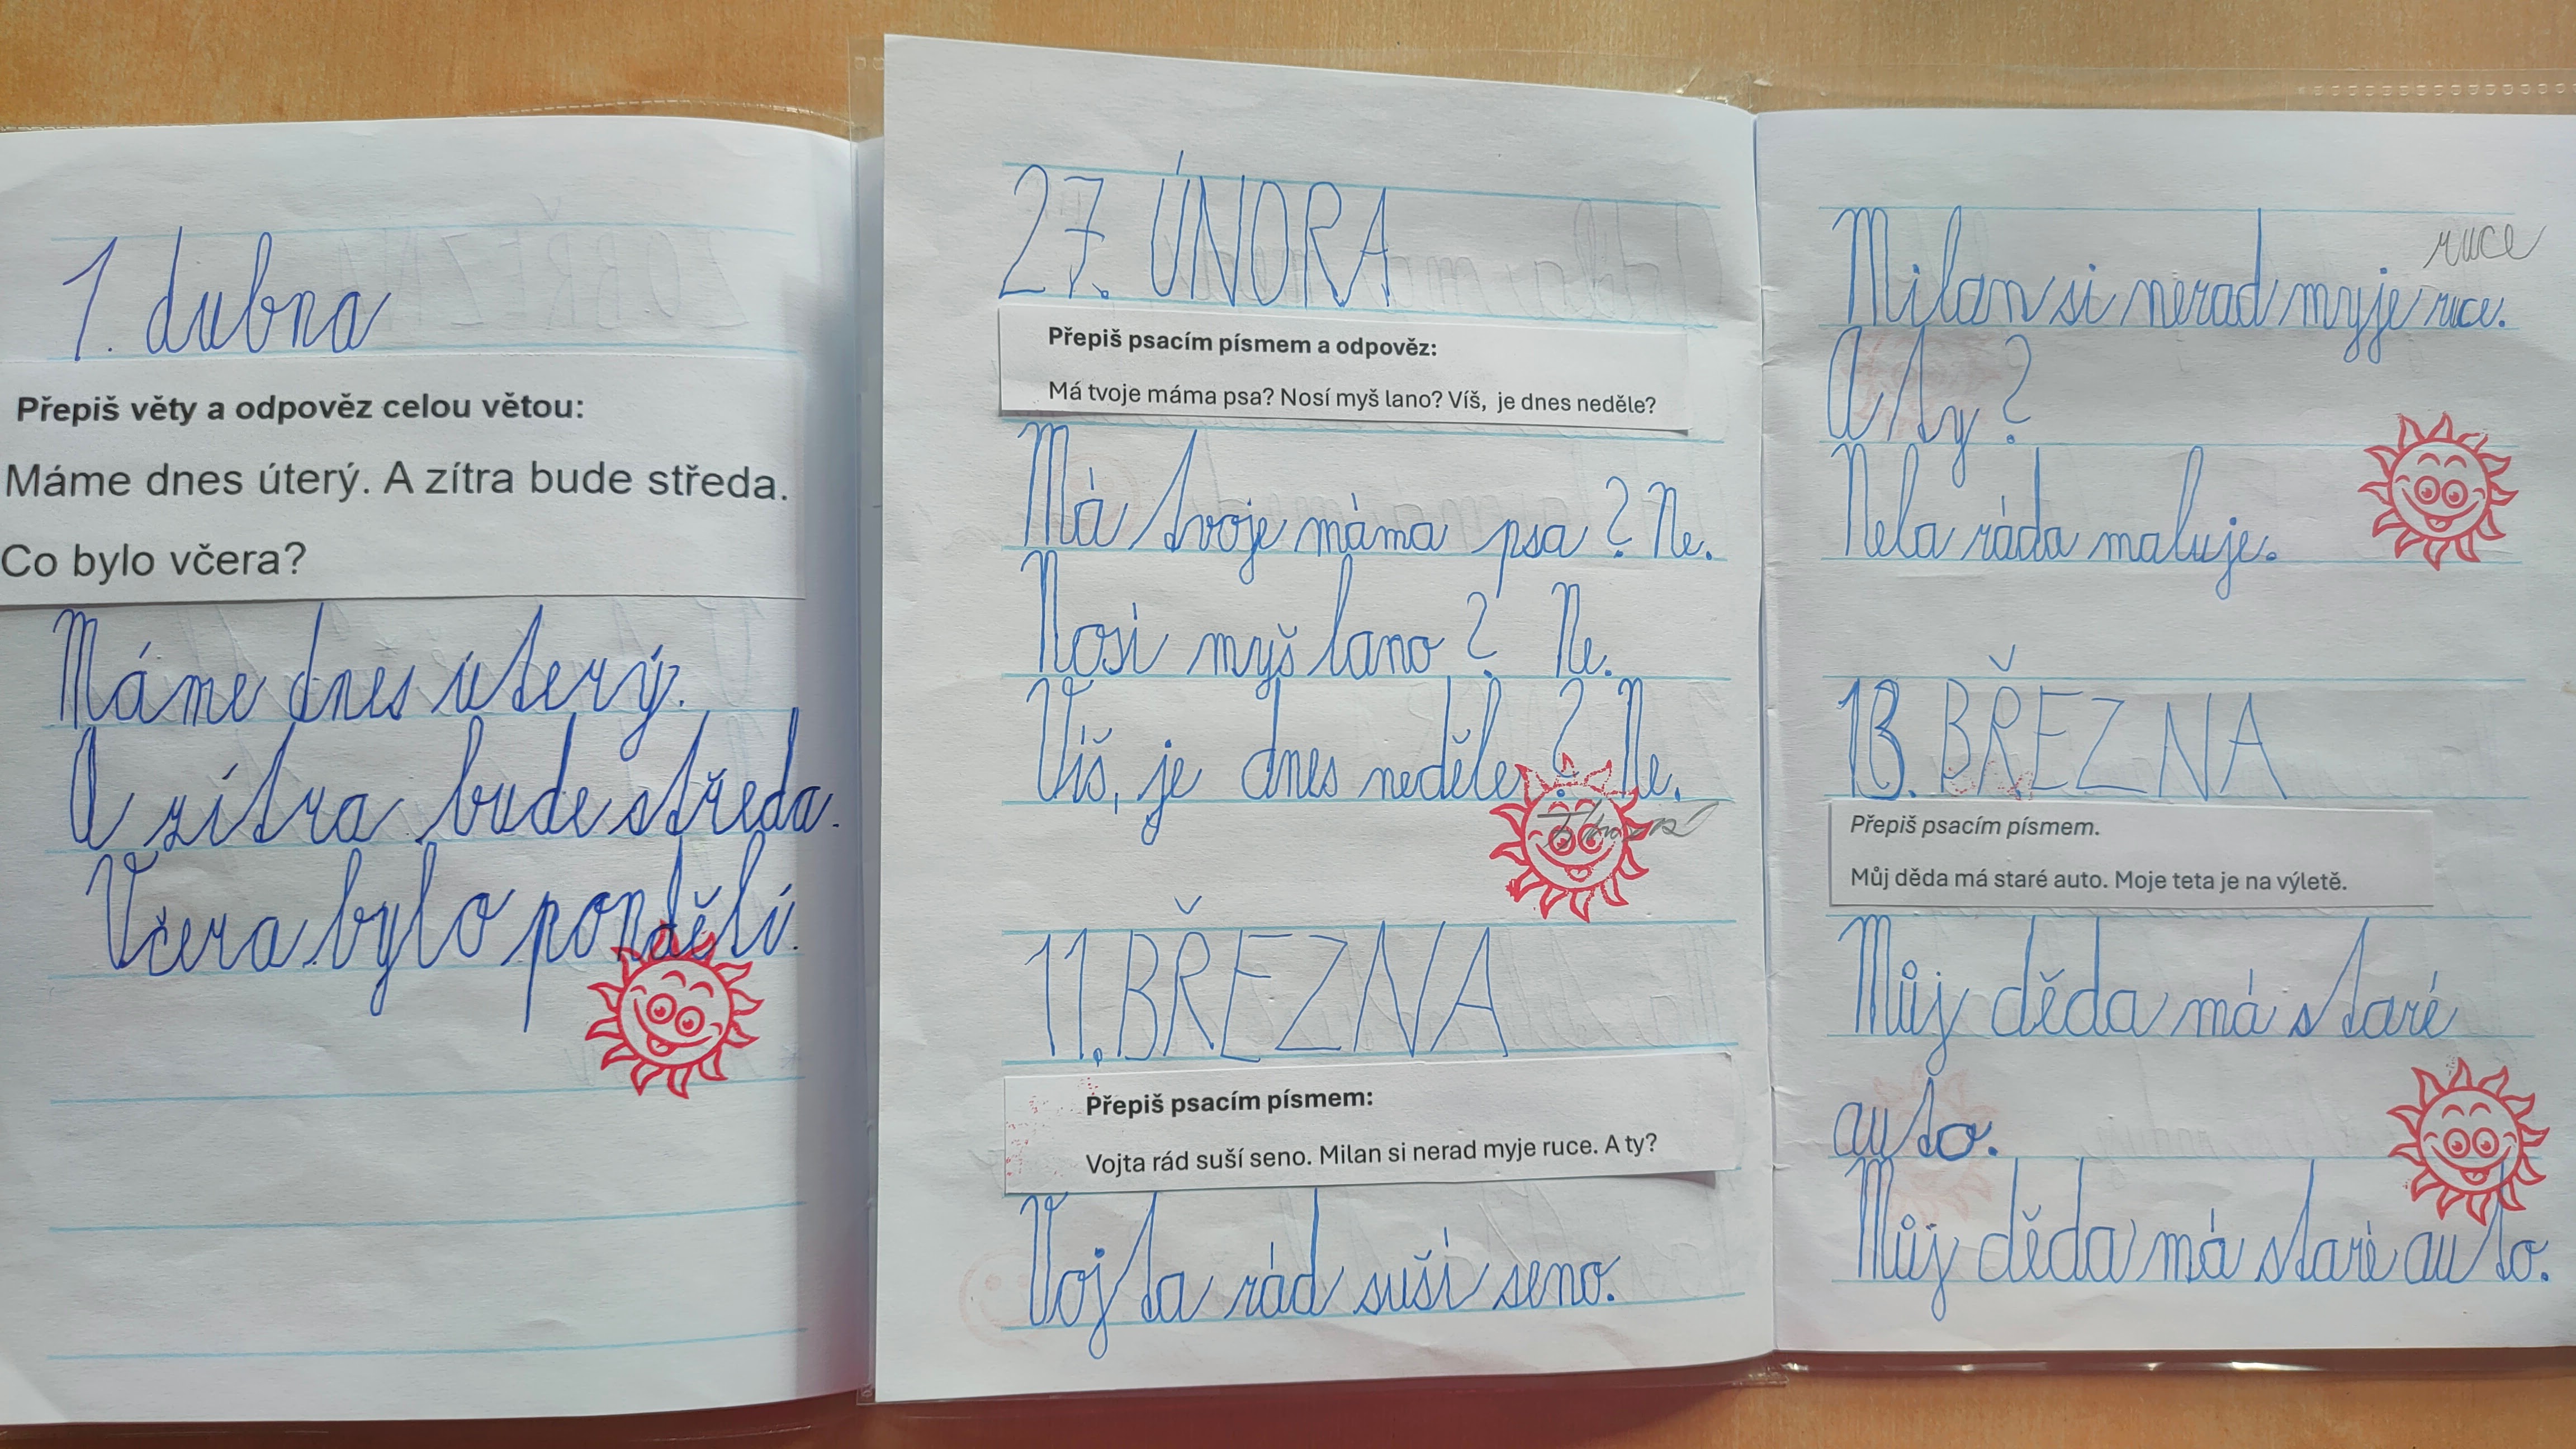 1. dubna
Přepiš věty a odpověz celou větou:
Máme dnes úterý. A zítra bude středa.
Co bylo včera?
Máme dnes úterý.
A zítra bude středa.
Včera bylo pondělí.
27. ÚNORA
Přepiš psacím písmem a odpověz:
Má tvoje máma psa? Nosí myš lano? Víš, je dnes neděle?
Má tvoje máma psa? Ne.
Nosí myš lano? Ne.
Víš, je dnes neděle? Ne.
11. BŘEZNA
Přepiš psacím písmem:
Vojta rád suší seno. Milan si nerad myje ruce. A ty?
Vojta rád suší seno.
ruce
Milan si nerad myje ruce.
A ty?
Nela ráda maluje.
13. BŘEZNA
Přepiš psacím písmem.
Můj děda má staré auto. Moje teta je na výletě.
Můj děda má staré
auto.
Můj děda má staré auto.